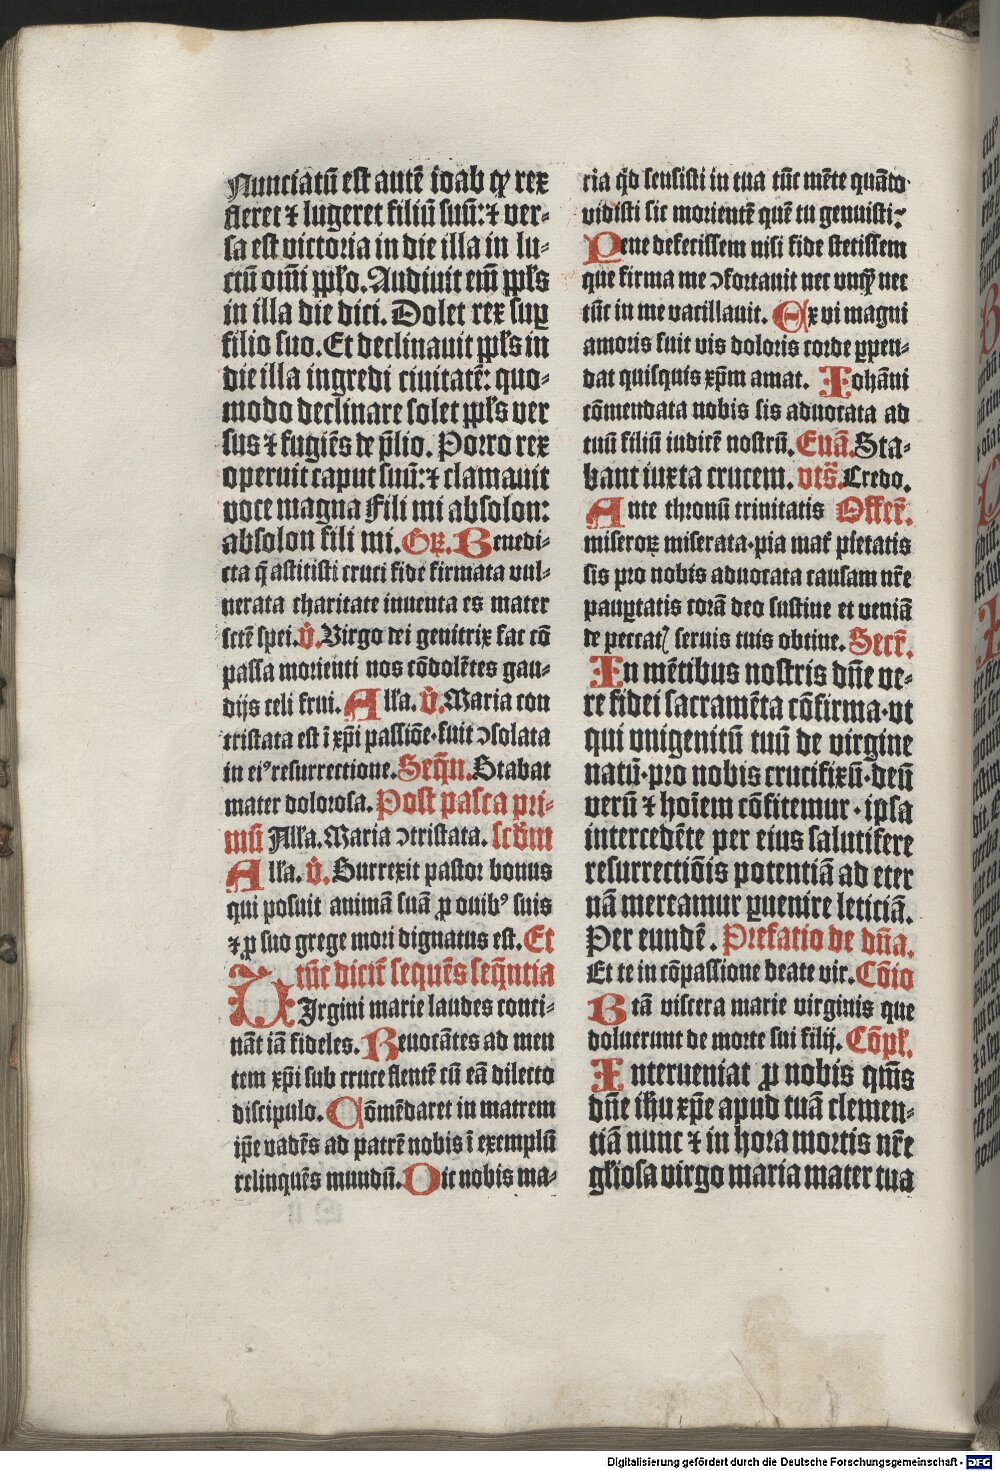 Nunciatū est autē ioab qꝫ rex
fleret ⁊ lugeret filiū suū: ⁊ ver-
sa est victoria in die illa in lu-
ctū om̄i pplo. Audiuit em̄ ppls
in illa die dici. Dolet rex suꝑ
filio suo. Et declinauit ppls in
die illa ingredi ciuitatē: quo-
modo declinare solet ppls ver
sus ⁊ fugiēs de p̄lio. Porro rex
operuit caput suū: ⁊ clamauit
voce magna Fili mi absolon:
absolon fili mi. Gꝛ. Benedi-
cta q̄ astitisti cruci fide firmata vul-
nerata charitate inuenta es mater
sctē spei. v̄. Virgo dei genitrix fac cō
passa morienti nos cōdolētes gau-
dijs celi frui. Alla. v̄. Maria con
tristata est ī xp̄i passiōe. fuit ↄsolata
in eiꝰ resurrectione. Seq̄n. Stabat
mater dolorosa. Post pasca pri-
mū Alla. Maria ↄtristata. scd̄m
Alla. v̄. Surrexit pastor bonus
qui posuit animā suā ꝓ ouibꝰ suis
⁊ ꝓ suo grege mori dignatus est. Et
tūc dicit̄ sequēs seq̄ntia
VIrgini marie laudes conci-
nāt iā fideles. Reuocātes ad men
tem xp̄i sub cruce flentē cū eā dilecto
discipulo. Cōmēdaret in matrem
ip̄e vadēs ad patrē nobis ī exemplū
relinquēs mundū. Dic nobis ma-
ria qd̄ sensisti in tua tūc mēte quādo
vidisti sic morientē quē tu genuisti?
Pene defecissem nisi fide stetissem
que firma me ↄfortauit nec vnqꝫ nec
tūc in me vacillauit. Ex vi magni
amoris fuit vis doloris corde ꝑpen-
dat quisquis xp̄m amat. Iohāni
cōmendata nobis sis aduocata ad
tuū filiū iudicē nostrū. Euā. Sta-
bant iuxta crucem. vts̄. Credo.
Ante thronū trinitatis Offer̄.
miseroꝝ miserata. pia mat̄ pietatis
sis pro nobis aduocata causam nr̄e
pauꝑtatis corā deo sustine et veniā
de peccatꝭ seruis tuis obtine. Secr̄.
In mētibus nostris dn̄e ve-
re fidei sacramēta cōfirma. vt
qui vnigenitū tuū de virgine
natū. pro nobis crucifixū. deū
verū ⁊ hoiēm cōfitemur. ipsa
intercedēte per eius salutifere
resurrectiōis potentiā ad eter
nā mereamur ꝑuenire leticiā.
Per eundē. Prefatio de dn̄a.
Et te in cōpassione beate vir. Cōio
Btā viscera marie virginis que
doluerunt de morte sui filij. Cōpl̄.
Interueniat ꝓ nobis qm̄s
dn̄e ihū xp̄e apud tuā clemen-
tiā nunc ⁊ in hora mortis nr̄e
gl̄iosa virgo maria mater tua
Digitalisierung gefördert durch die Deutsche Forschungsgemeinschaft - DFG